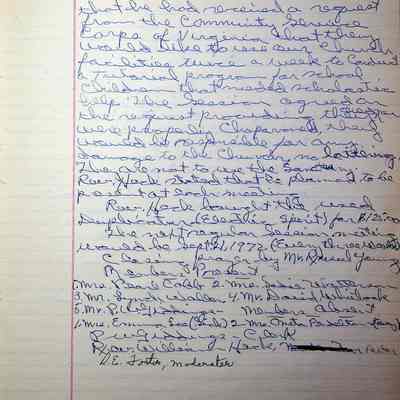 that he had received a request
from the Community Service
Corps of Virginia that they
would like to use our Church
facilities twice a week to conduct
a tutorial program for school
Children that needed scholastic
help. The Session agreed on
the request providing the
were properly Chaperoned, they
would be responsible for any
damage to the Church, no loitering,
They are not to use the Sanctuary
Rev. Heck stated that he planned to be
present at each meeting
Rev. Heck bought the used
Duplicator (Electric, Spirit) for $125.00
The next regular Session meeting
would be Sept 21, 1972 (Every three
Closing prayer by Mr. Young
Members Present
1. Mrs. Pearl Cobb 2. Mrs. Sadie
3. Mr. Waller 4. Mr. David
5. Mr. P. Members Absent
1. Mrs. Emma (Sick) 2 Mrs.
P. Clerk
Rev. William Heck,
E. Foster, moderator